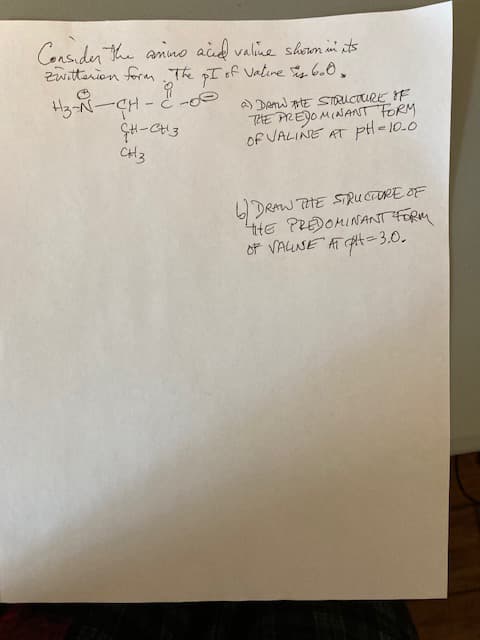 Consider the amino acid valine shown in its
zwitterion form. The pI of valine is 6.0.
⊕ O
H3-N—CH-C-O⊖
CH-CH3
CH3
a) DRAW THE STRUCTURE OF
THE PREDOMINANT FORM
OF VALINE AT pH=10.0
b) DRAW THE STRUCTURE OF
THE PREDOMINANT FORM
OF VALINE AT pH=3.0.